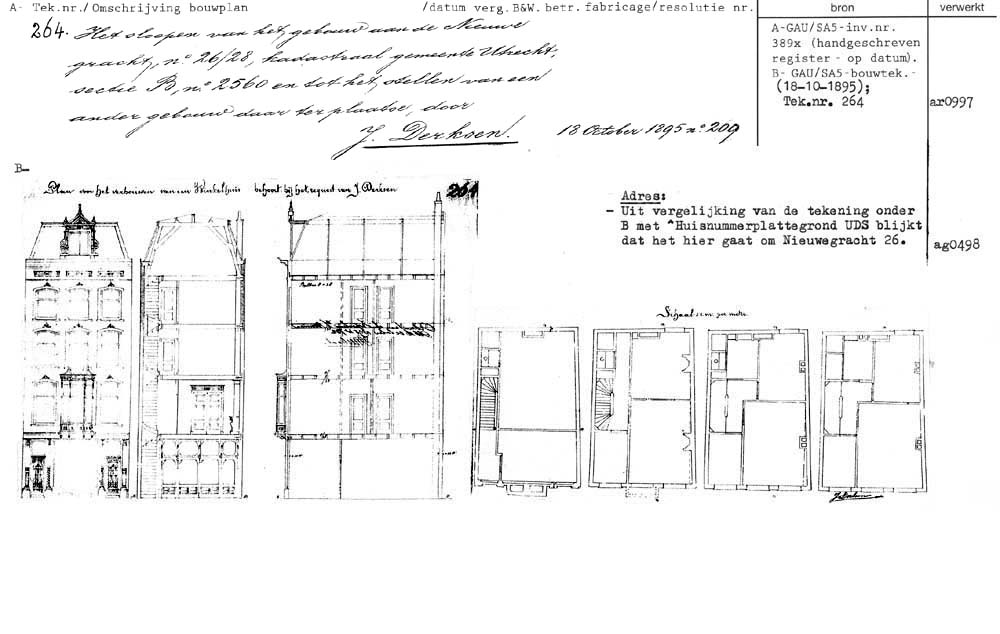 A- Tek.nr./Omschrijving bouwplan /datum verg.B&W. betr. fabricage/resolutie nr. bron verwerkt
264. Het sloopen van het gebouw aan de Nieuwe
gracht, n.º 26/28, kadastraal gemeente Utrecht,
sectie B, n.º 2560 en tot het stellen van een
ander gebouw daar ter plaatse, door
J. Derksen. 18 October 1895 n.º 209
A-GAU/SA5-inv.nr.
389x (handgeschreven
register - op datum).
B- GAU/SA5-bouwtek.-
(18-10-1895);
Tek.nr. 264
ar0997
B-
Plan voor het verbouwen van een Winkelhuis behoort bij het request van J. Derksen
264
Adres:
- Uit vergelijking van de tekening onder
B met ^Huisnummerplattegrond UDS blijkt
dat het hier gaat om Nieuwegracht 26.
ag0498
Schaal
J. Derksen